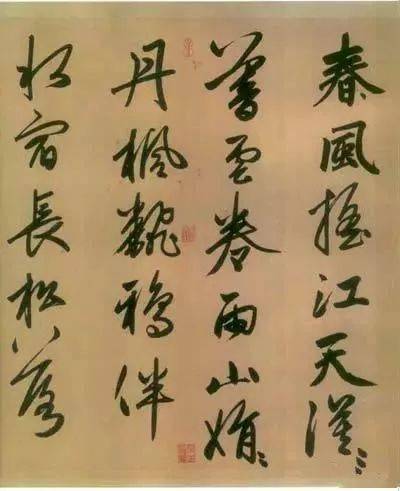 春風搖江天漠〻
暮雲卷雨山娟〻
丹楓飜鴉伴
水宿長松落